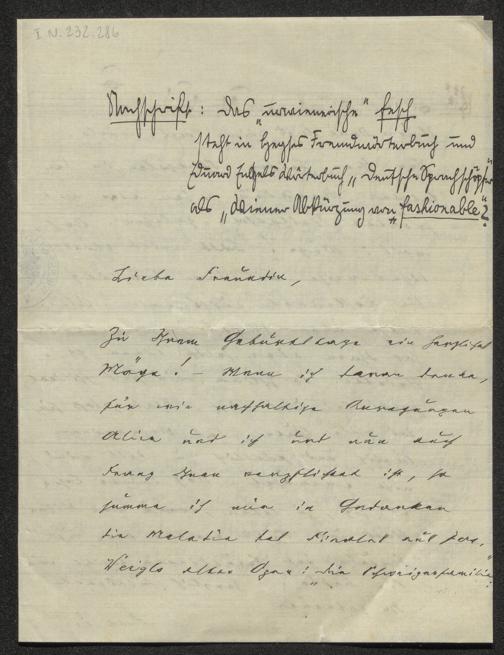 I. N. 232.286
Nachschrift: das „urwienerische" fesch
steht in Heyses Fremdwörterbuch und
Eduard Engels Wörterbuch „Deutsche Sprachschöpfer"
als „Wiener Abkürzung von „fashionable"?
Liebe Freundin,
Zu Ihrem Geburtstage ein herzliches
Möge! – Wenn ich daran denke,
für wie nachhaltige Anregungen
Alice und ich und nun auch
Franz Ihnen verpflichtet ist, so
summe ich nun in Gedanken
die Melodie des Finales aus Jos.
Weigls alter Oper: „Die Schweizerfamilie"